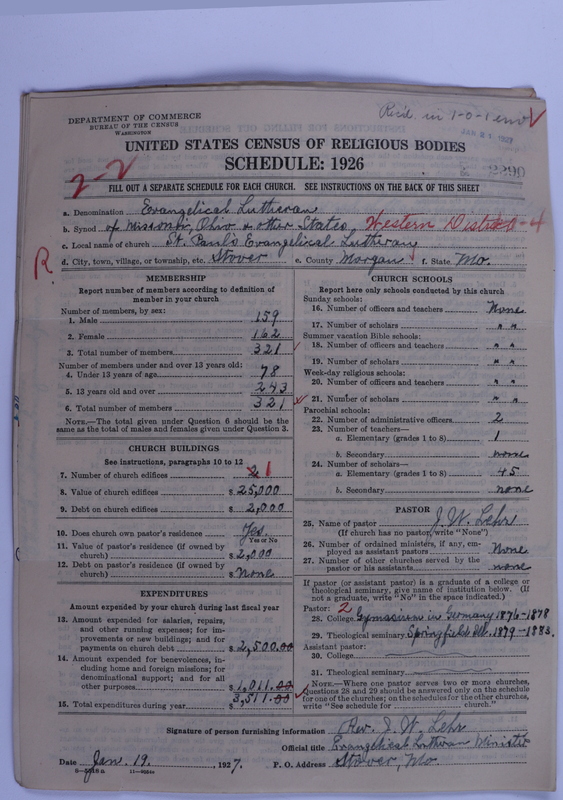 DEPARTMENT OF COMMERCE
BUREAU OF THE CENSUS
WASHINGTON
Rec'd. in 1-0-1 env
JAN 21 1927
UNITED STATES CENSUS OF RELIGIOUS BODIES
SCHEDULE: 1926
2-2
FILL OUT A SEPARATE SCHEDULE FOR EACH CHURCH. SEE INSTRUCTIONS ON THE BACK OF THIS SHEET
a. Denomination Evangelical Lutheran
b. Synod of Missouri, Ohio & other States, Western District-4
c. Local name of church St. Paul's Evangelical Lutheran
R.
d. City, town, village, or township, etc. Stover e. County Morgan f. State Mo.
MEMBERSHIP
Report number of members according to definition of
member in your church
Number of members, by sex:
1. Male 159
2. Female 162
3. Total number of members 321
Number of members under and over 13 years old:
4. Under 13 years of age 78
5. 13 years old and over 243
6. Total number of members 321
NOTE.—The total given under Question 6 should be the
same as the total of males and females given under Question 3.
CHURCH BUILDINGS
See instructions, paragraphs 10 to 12
7. Number of church edifices 2 1
8. Value of church edifices $ 25,000
9. Debt on church edifices $ 2,000
10. Does church own pastor's residence Yes
Yes or No
11. Value of pastor's residence (if owned by
church) $ 2,000
12. Debt on pastor's residence (if owned by
church) $ None
EXPENDITURES
Amount expended by your church during last fiscal year
13. Amount expended for salaries, repairs,
and other running expenses; for im-
provements or new buildings; and for
payments on church debt $ 2,500.00
14. Amount expended for benevolences, in-
cluding home and foreign missions; for
denominational support; and for all
other purposes $ 1,011.00
15. Total expenditures during year $ 3,511.00
CHURCH SCHOOLS
Report here only schools conducted by this church
Sunday schools:
16. Number of officers and teachers None
17. Number of scholars " "
Summer vacation Bible schools:
18. Number of officers and teachers " "
19. Number of scholars " "
Week-day religious schools:
20. Number of officers and teachers " "
21. Number of scholars " "
Parochial schools:
22. Number of administrative officers 2
23. Number of teachers—
a. Elementary (grades 1 to 8) 1
b. Secondary none
24. Number of scholars—
a. Elementary (grades 1 to 8) 45
b. Secondary none
PASTOR
25. Name of pastor J. W. Lehr
(If church has no pastor, write "None")
26. Number of ordained ministers, if any, em-
ployed as assistant pastors None
27. Number of other churches served by the
pastor or his assistants none
If pastor (or assistant pastor) is a graduate of a college or
theological seminary, give name of institution below. (If
not a graduate, write "No" in the space indicated.)
Pastor: 2
28. College Gymasium in Germany 1876-1878
29. Theological seminary Springfield Ill. 1879-1883.
Assistant pastor:
30. College
31. Theological seminary
NOTE.—Where one pastor serves two or more churches,
Questions 28 and 29 should be answered only on the schedule
for one of the churches; on the schedule for the other churches,
write "See schedule for church."
Signature of person furnishing information Rev. J. W. Lehr
Official title Evangelical Lutheran Minister
Date Jan. 19, 1927. P. O. Address Stover, Mo.